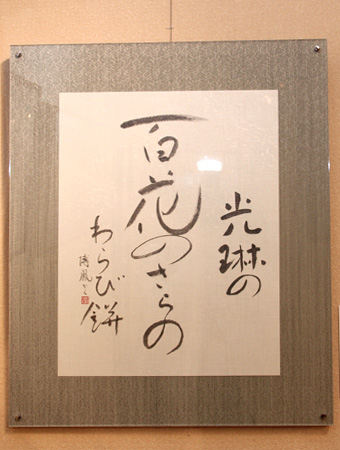 光琳の
百花のさらの
わらび餅